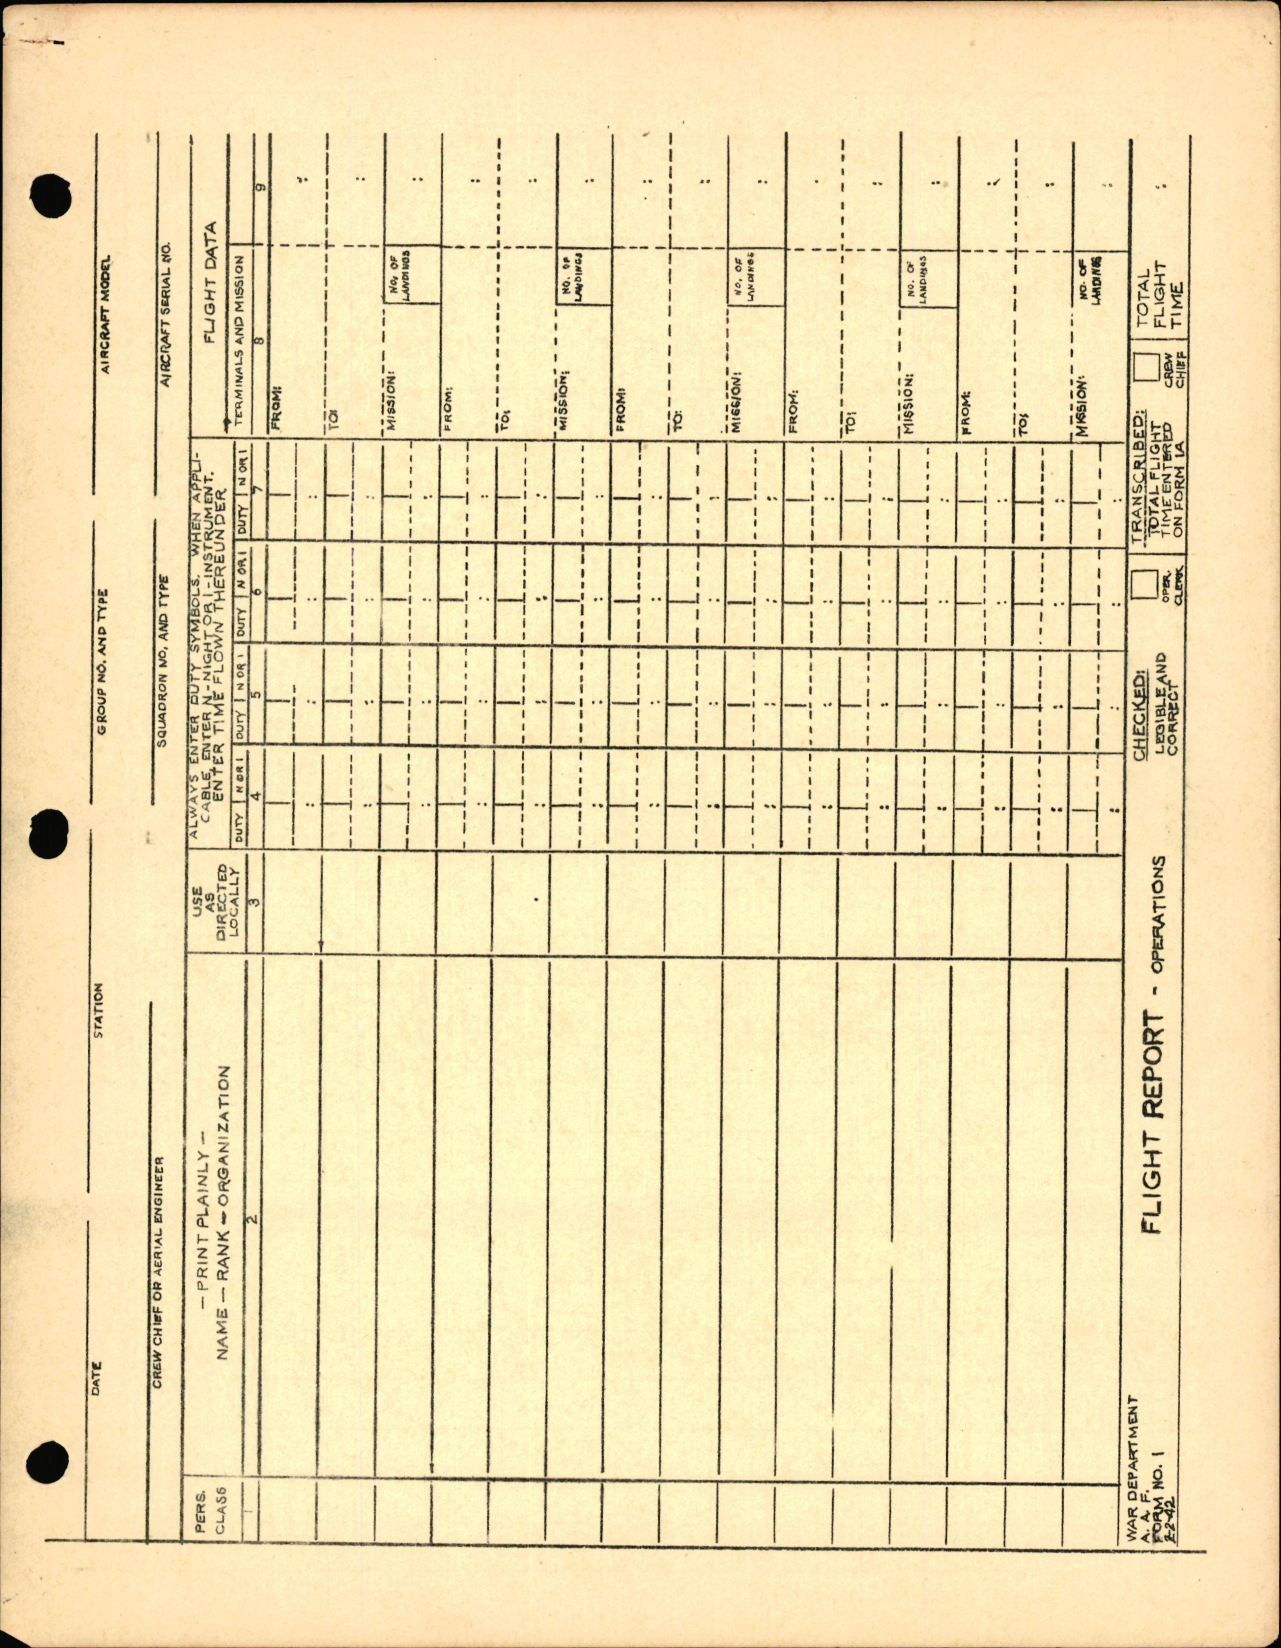 DATE STATION GROUP NO. AND TYPE AIRCRAFT MODEL
CREW CHIEF OR AERIAL ENGINEER SQUADRON NO. AND TYPE AIRCRAFT SERIAL NO.
PERS. CLASS
— PRINT PLAINLY —
NAME — RANK — ORGANIZATION
USE
AS
DIRECTED
LOCALLY
ALWAYS ENTER DUTY SYMBOLS. WHEN APPLI-
CABLE ENTER N-NIGHT OR I-INSTRUMENT.
ENTER TIME FLOWN THEREUNDER
FLIGHT DATA
DUTY N OR I DUTY N OR I DUTY N OR I DUTY N OR I TERMINALS AND MISSION
1 2 3 4 5 6 7 8 9
FROM:
TO:
MISSION: NO. OF LANDINGS
FROM:
TO:
MISSION: NO. OF LANDINGS
FROM:
TO:
MISSION: NO. OF LANDINGS
FROM:
TO:
MISSION: NO. OF LANDINGS
FROM:
TO:
MISSION: NO. OF LANDINGS
WAR DEPARTMENT
A. A. F.
FORM NO. 1
2-2-42
FLIGHT REPORT - OPERATIONS
CHECKED:
LEGIBLE AND
CORRECT
OPER.
CLERK
TRANSCRIBED:
TOTAL FLIGHT
TIME ENTERED
ON FORM 1A
CREW
CHIEF
TOTAL
FLIGHT
TIME